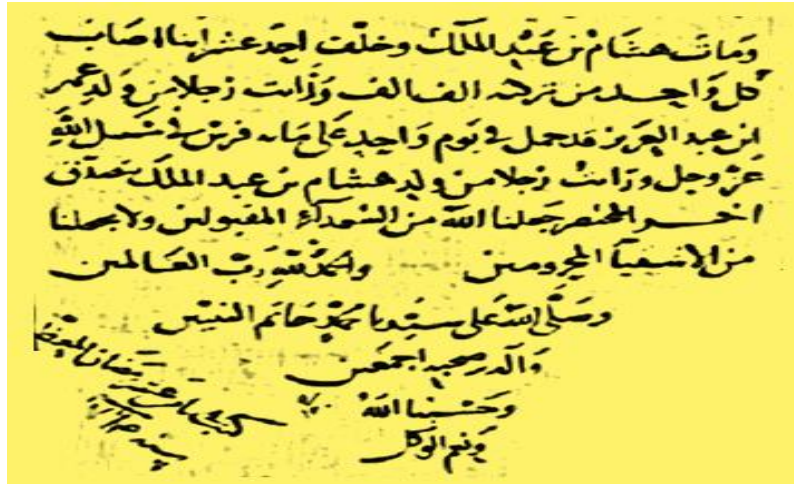 ومات هشام بن عبد الملك وخلف احد عشر ابنا اصاب
كل واحد من تركته الف الف ورأيت رجلا من ولد عمر
ابن عبد العزيز قد حمل في يوم واحد على مائه فرس في سبيل الله
عز وجل ورأيت رجلا من ولد هشام بن عبد الملك يتصدق
اخر المختصر جعلنا الله من السعداء المقبولين ولا يجعلنا
من الاشقيآ المحرومين والحمد لله رب العالمين
وصلى الله على سيدنا محمد خاتم النبيين
وآله وصحبه اجمعين
وحسبنا الله
ونعم الوكيل
كتب في ثامن عشر رمضان المعظم
سنة